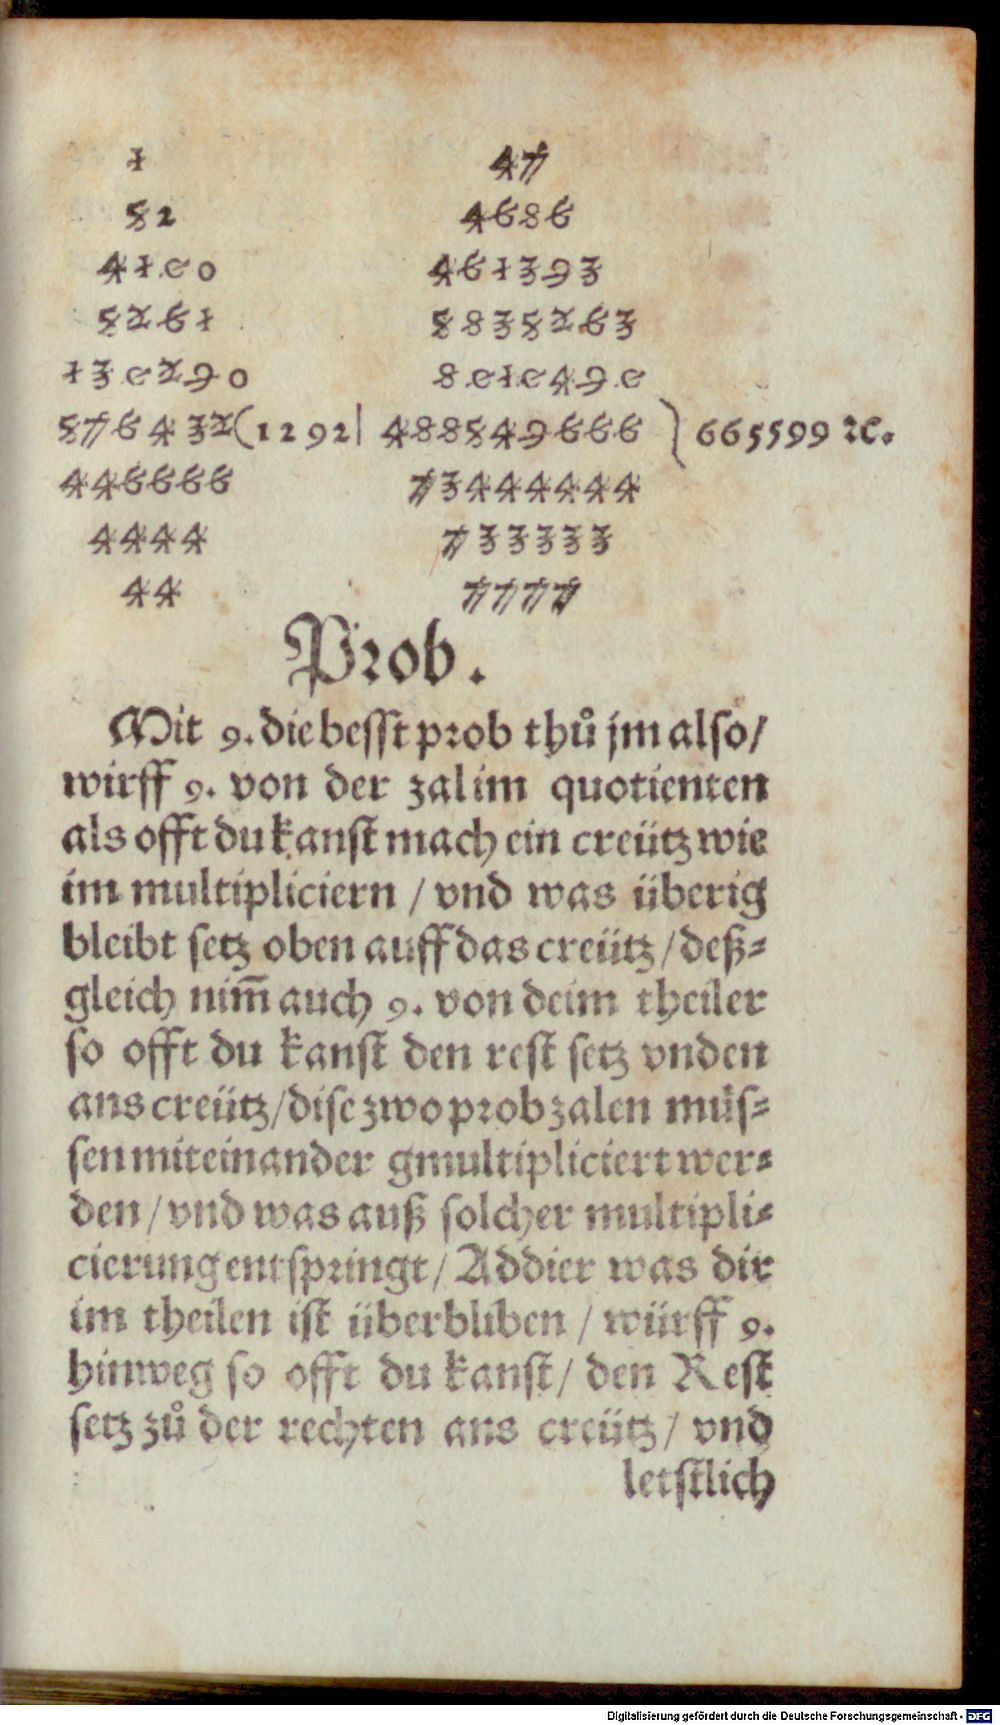 1 47
82 4686
4100 461393
5261 8835263
130290 8010490
576432(1292| 488549666 ) 665599 ꝛc.
446666 73444444
4444 733333
44 7777
Prob.
Mit 9. die besst prob thů jm also/
wirff 9. von der zal im quotienten
als offt du kanst mach ein creütz wie
im multipliciern / vnd was überig
bleibt setz oben auff das creütz / deß⸗
gleich nim̄ auch 9. von deim theiler
so offt du kanst den rest setz vnden
ans creütz/dise zwo prob zalen müs⸗
sen miteinander gmultipliciert wer⸗
den / vnd was auß solcher multipli⸗
cierung entspringt / Addier was dir
im theilen ist überbliben / würff 9.
hinweg so offt du kanst / den Rest
setz zů der rechten ans creütz / vnd
letstlich
Digitalisierung gefördert durch die Deutsche Forschungsgemeinschaft - DFG